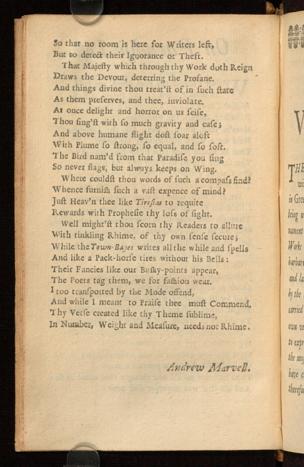 So that no room is here for Writers left,
But to detect their Ignorance or Theft.
That Majesty which through thy Work doth Reign
Draws the Devout, deterring the Profane.
And things divine thou treat'st of in such state
As them preserves, and thee, inviolate.
At once delight and horror on us seise,
Thou sing'st with so much gravity and ease;
And above humane flight dost soar aloft
With Plume so strong, so equal, and so soft.
The Bird nam'd from that Paradise you sing
So never flags, but always keeps on Wing.
Where couldst thou words of such a compass find?
Whence furnish such a vast expence of mind?
Just Heav'n thee like Tiresias to requite
Rewards with Prophesie thy loss of sight.
Well might'st thou scorn thy Readers to allure
With tinkling Rhime, of thy own sense secure;
While the Town-Bayes writes all the while and spells
And like a Pack-horse tires without his Bells:
Their Fancies like our Bushy-points appear,
The Poets tag them, we for fashion wear.
I too transported by the Mode offend,
And while I meant to Praise thee must Commend.
Thy Verse created like thy Theme sublime,
In Number, Weight and Measure, needs not Rhime.
Andrew Marvell.
THE